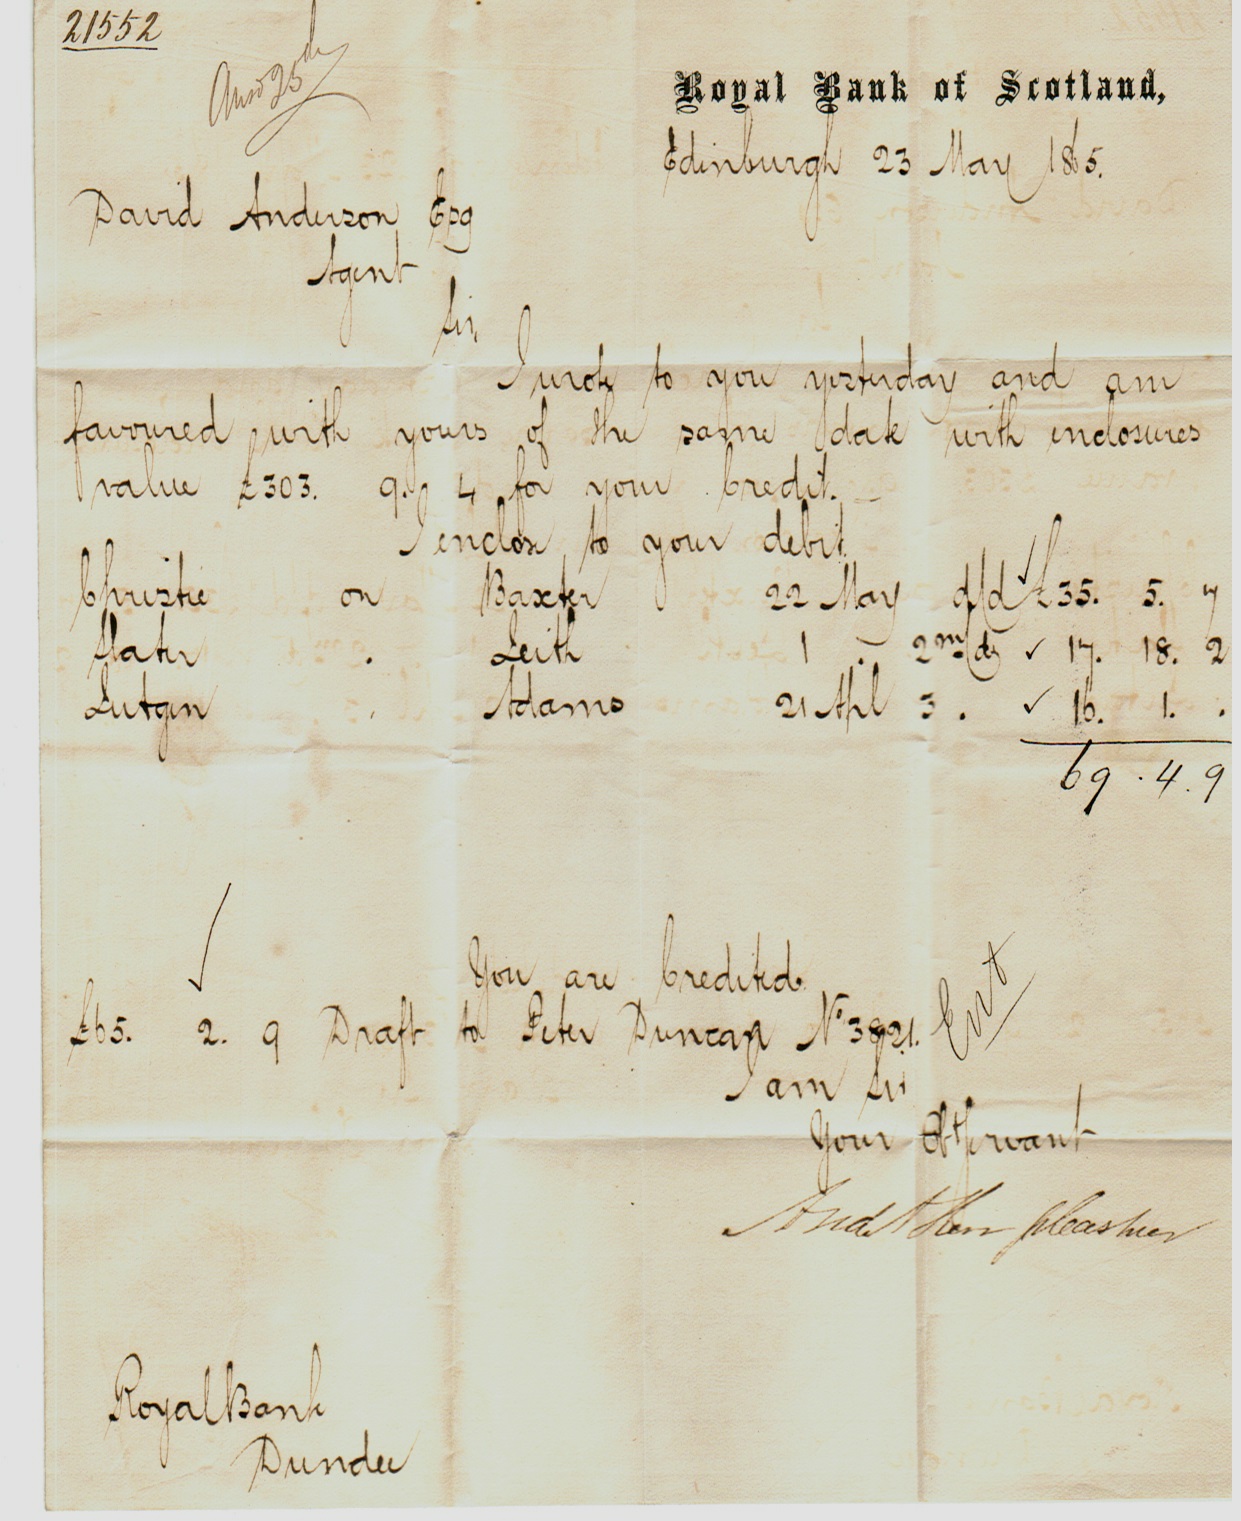 21552
Ansd 25th
Royal Bank of Scotland,
Edinburgh 23 May 1865.
David Anderson Esq
Agent
Sir,
I wrote to you yesterday and am
favoured with yours of the same date with enclosures
value £303. 9. 4 for your Credit.
I enclose to your debit
Christie on Baxter 22 May d/d ✓ £35. 5. 7
Slater . Leith 1 . 2m/d ✓ 17. 18. 2
Lutgen . Adams 21 Apl 3 . ✓ 16. 1. .
69 . 4 . 9
✓
You are Credited.
£65. 2. 9 Draft to Peter Duncan No 3821. Ent
I am Sir
Your Obt Servant
Royal Bank
Dundee